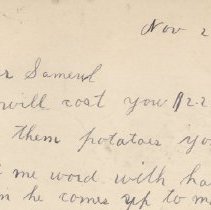 Nov 2
r Samuel
will cost you 12.2
them potatoes yo
me word with ha
n he comes up to m